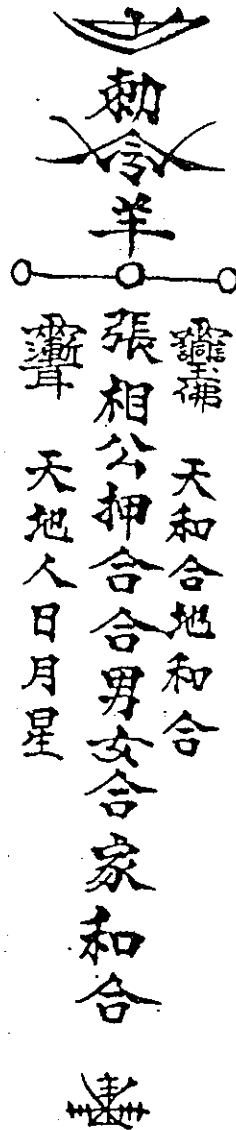 勅令
羊
天和合地和合
張相公押合合男女合家和合
天地人日月星